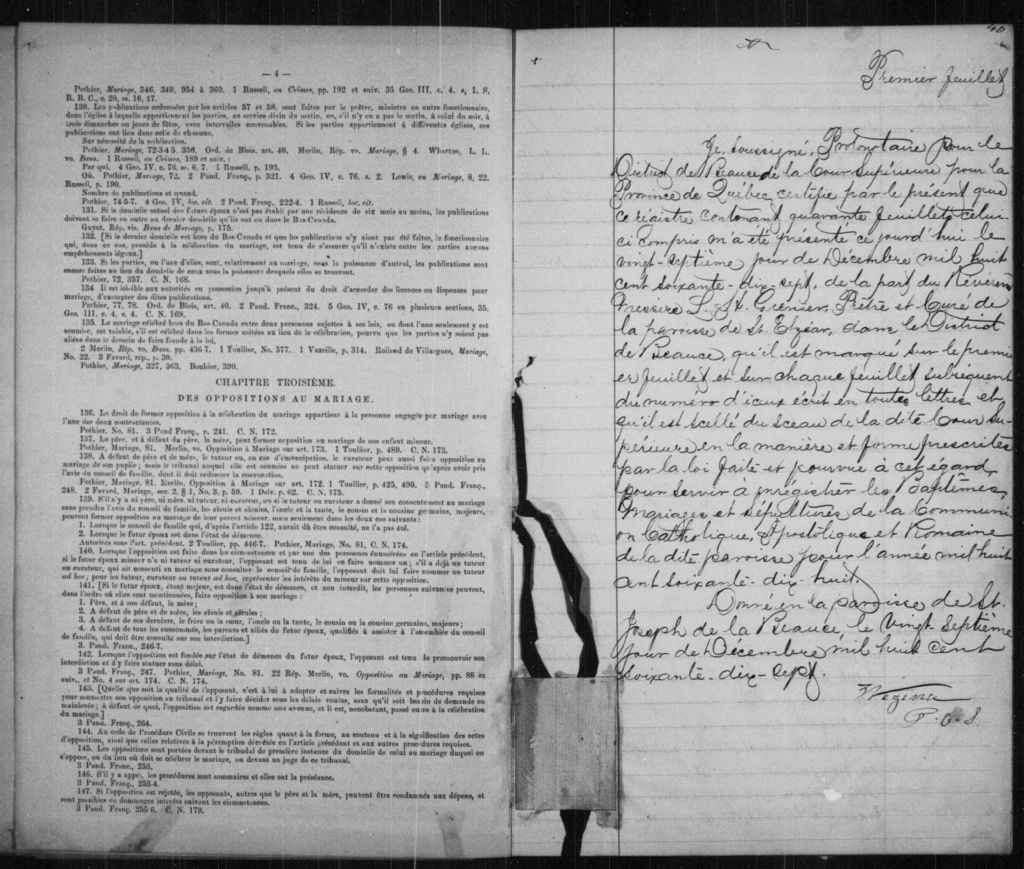 — 4 —
Pothier, Mariage, 346, 349, 954 à 360. 1 Russell, on Crimes, pp. 192 et suiv. 35 Geo. III, c. 4. s, 1. S.
R. B. C., c. 20, ss. 16, 17.
130. Les publications ordonnées par les articles 57 et 58, sont faites par le prêtre, ministre ou autre fonctionnaire,
dans l'église à laquelle appartiennent les parties, au service divin du matin, ou, s'il n'y en a pas le matin, à celui du soir, à
trois dimanches ou jours de fêtes, avec intervalles convenables. Si les parties appartiennent à différentes églises, ces
publications ont lieu dans celle de chacune.
Sur nécessité de la publication.
Pothier, Mariage, 72-3-4 5. 356. Ord. de Blois, art. 40. Merlin, Rép. vo. Mariage, § 4. Wharton, L. L.
vo. Bans. 1 Russell, on Crimes, 189 et suiv. :
Par qui. 4 Geo. IV, c. 76, ss. 6, 7. 1 Russell, p. 193.
Où. Pothier, Mariage, 72. 2 Pand. Franç., p. 321. 4 Geo. IV, c. 76, s. 2. Lewis, on Marriage, 8, 22.
Russell, p. 190.
Nombre de publications et quand.
Pothier, 74-5-7. 4 Geo. IV, loc. cit. 2 Pand. Franç., 222-4. 1 Russell, loc. cit.
131. Si le domicile actuel des futurs époux n'est pas établi par une résidence de six mois au moins, les publications
doivent se faire en outre au dernier domicile qu'ils ont eu dans le Bas-Canada.
Guyot, Rép. vis. Bans de Mariage, p. 175.
132. [Si le dernier domicile est hors du Bas-Canada et que les publications n'y aient pas été faites, le fonctionnaire
qui, dans ce cas, procède à la célébration du mariage, est tenu de s'assurer qu'il n'existe entre les parties aucuns
empêchements légaux.]
133. Si les parties, ou l'une d'elles, sont, relativement au mariage, sous la puissance d'autrui, les publications sont
encore faites au lieu du domicile de ceux sous la puissance desquels elles se trouvent.
Pothier, 72, 357. C. N. 168.
134 Il est loisible aux autorités en possession jusqu'à présent du droit d'accorder des licences ou dispenses pour
mariage, d'exempter des dites publications.
Pothier, 77, 78. Ord. de Blois, art. 40. 2 Pand. Franç., 324. 5 Geo. IV, c. 76 en plusieurs sections, 35.
Geo. III. c. 4, s. 4. C. N. 169.
135. Le mariage célébré hors du Bas-Canada entre deux personnes sujettes à ses lois, ou dont l'une seulement y est
soumise, est valable, s'il est célébré dans les formes usitées au lieu de la célébration, pourvu que les parties n'y soient pas
allées dans le dessein de faire fraude à la loi.
2 Merlin, Rép. vo. Bans. pp. 436-7. 1 Toullier, No. 577. 1 Vazeille, p. 314. Rolland de Villargues, Mariage,
No. 22. 3 Favard, rép., p. 30.
Pothier, Mariage, 327, 363. Bouhier, 390.
CHAPITRE TROISIÈME.
DES OPPOSITIONS AU MARIAGE.
136. Le droit de former opposition à la célébration du mariage appartient à la personne engagée par mariage avec
l'une des deux contractantes.
Pothier, No. 81. 3 Pand Franç., p. 241. C. N. 172.
137. Le père, et à défaut du père, la mère, peut former opposition au mariage de son enfant mineur.
Pothier, Mariage, 81. Merlin, vo. Opposition à Mariage sur art. 173. 1 Toullier, p. 489. C. N. 173.
138. A défaut de père et de mère, le tuteur, ou, au cas d'émancipation, le curateur peut aussi faire opposition au
mariage de son pupille ; mais le tribunal auquel elle est soumise ne peut statuer sur cette opposition qu'après avoir pris
l'avis du conseil de famille, dont il doit ordonner la convocation.
Pothier, Mariage, 81. Merlin, Opposition à Mariage sur art. 172. 1 Toullier, p. 425, 490. 3 Pand. Franç.,
248. 2 Favard, Mariage, sec. 2, § 1, No. 3, p. 59. 1 Dolv. p. 62. C. N. 175.
139. S'il n'y a ni père, ni mère, ni tuteur, ni curateur, ou si le tuteur ou curateur a donné son consentement au mariage
sans prendre l'avis du conseil de famille, les aïeuls et aïeules, l'oncle et la tante, le cousin et la cousine germains, majeurs,
peuvent former opposition au mariage de leur parent mineur, mais seulement dans les deux cas suivants :
1. Lorsque le conseil de famille qui, d'après l'article 122, aurait dû être consulté, ne l'a pas été.
2. Lorsque le futur époux est dans l'état de démence.
Autorités sous l'art. précédent. 2 Toullier, pp. 446-7. Pothier, Mariage, No, 81, C. N. 174.
140. Lorsque l'opposition est faite dans les circonstances et par une des personnes énumérées en l'article précédent,
si le futur époux mineur n'a ni tuteur ni curateur, l'opposant est tenu de lui en faire nommer un ; s'il a déjà un tuteur
ou curateur, qui ait consenti au mariage sans consulter le conseil de famille, l'opposant doit lui faire nommer un tuteur
ad hoc ; pour les tuteur, curateur ou tuteur ad hoc, représenter les intérêts du mineur sur cette opposition.
141. [Si le futur époux, étant majeur, est dans l'état de démence, et non interdit, les personnes suivantes peuvent,
dans l'ordre où elles sont mentionnées, faire opposition à son mariage :
1. Père, et à son défaut, la mère ;
2. A défaut de père et de mère, les aïeuls et aïeules ;
3. A défaut de ces derniers, le frère ou la sœur, l'oncle ou la tante, le cousin ou la cousine germains, majeurs ;
4. A défaut de tous les susnommés, les parents et alliés du futur époux, qualifiés à assister à l'assemblée du conseil
de famille, qui doit être consulté sur son interdiction.]
3. Pand. Franc., 246-7.
142. Lorsque l'opposition est fondée sur l'état de démence du futur époux, l'opposant est tenu de promouvoir son
interdiction et d'y faire statuer sans délai.
3 Pand. Franç., 247. Pothier, Mariage, No. 81. 22 Rép. Merlin, vo. Opposition au Mariage, pp. 88 et
suiv., et No. 4 sur art. 174. C. N. 174.
143. [Quelle que soit la qualité de l'opposant, c'est à lui à adopter et suivre les formalités et procédures requises
pour soumettre son opposition au tribunal et l'y faire décider sous les délais voulus, sans qu'il soit besoin de demande en
mainlevée ; à défaut de quoi, l'opposition est regardée comme non avenue, et il est, nonobstant, passé outre à la célébration
du mariage.]
3 Pand. Franç., 264.
144. Au code de Procédure Civile se trouvent les règles quant à la forme, au contenu et à la signification des actes
d'opposition, ainsi que celles relatives à la péremption décrétée en l'article précédent et aux autres procédures requises.
145. Les oppositions sont portées devant le tribunal de première instance du domicile de celui au mariage duquel on
s'oppose, ou du lieu où doit se célébrer le mariage, ou devant un juge de ce tribunal.
3 Pand. Franc., 253.
146. S'il y a appel, les procédures sont sommaires et elles ont la préséance.
3 Pand. Franç., 253-4.
147. Si l'opposition est rejetée, les opposants, autres que le père et la mère, peuvent être condamnés aux dépens, et
sont passibles de dommages intérêts suivant les circonstances.
3 Pand. Franç. 255 6. C. N. 179.
40
Premier feuillet
Je, soussigné, Protonotaire pour le
District de Beauce de la Cour Supérieure pour la
Province de Québec, certifie par le présent que
ce registre contenant quarante feuillets celui-
ci compris m'a été présenté ce jourd'hui le
vingt-septième jour de Décembre mil huit
cent soixante-dix-sept, de la part du Révérend
Messire L. H. Grenier, Prêtre et Curé de
la paroisse de St. Elzéar, dans le District
de Beauce, qu'il est marqué sur le premi-
er feuillet et sur chaque feuillet subséquent
du numéro d'iceux écrit en toutes lettres et
qu'il est scellé du sceau de la dite Cour Su-
périeure en la manière et forme prescrites
par la loi faite et pourvue à cet égard,
pour servir à enrégistrer les Baptêmes,
Mariages et Sépultures de la Communi-
on Catholique, Apostolique et Romaine
de la dite paroisse pour l'année mil huit
cent soixante-dix-huit.
Donné en la paroisse de St.
Joseph de la Beauce, le vingt septième
jour de Décembre mil huit cent
soixante-dix-sept.
Vézina
P. C. S.